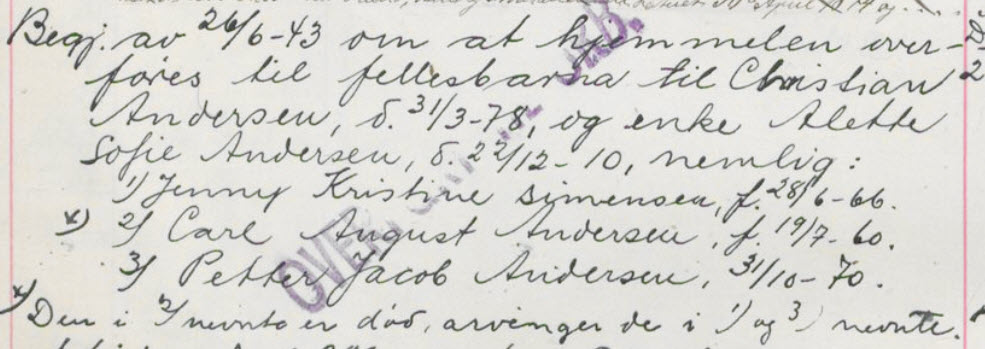 Begj. av 26/6-43 om at hjemmelen over-
føres til fellesbarna til Christian
Andersen, d. 31/3-78, og enke Alette
Sofie Andersen, d. 22/12-10, nemlig:
1) Jenny Kristine Simensen, f. 28/6-66.
x) 2) Carl August Andersen, f. 19/7-60.
3) Petter Jacob Andersen, 31/10-70.
x) Den i 2) nevnte er død, arvinger de i 1) og 3) nevnte.